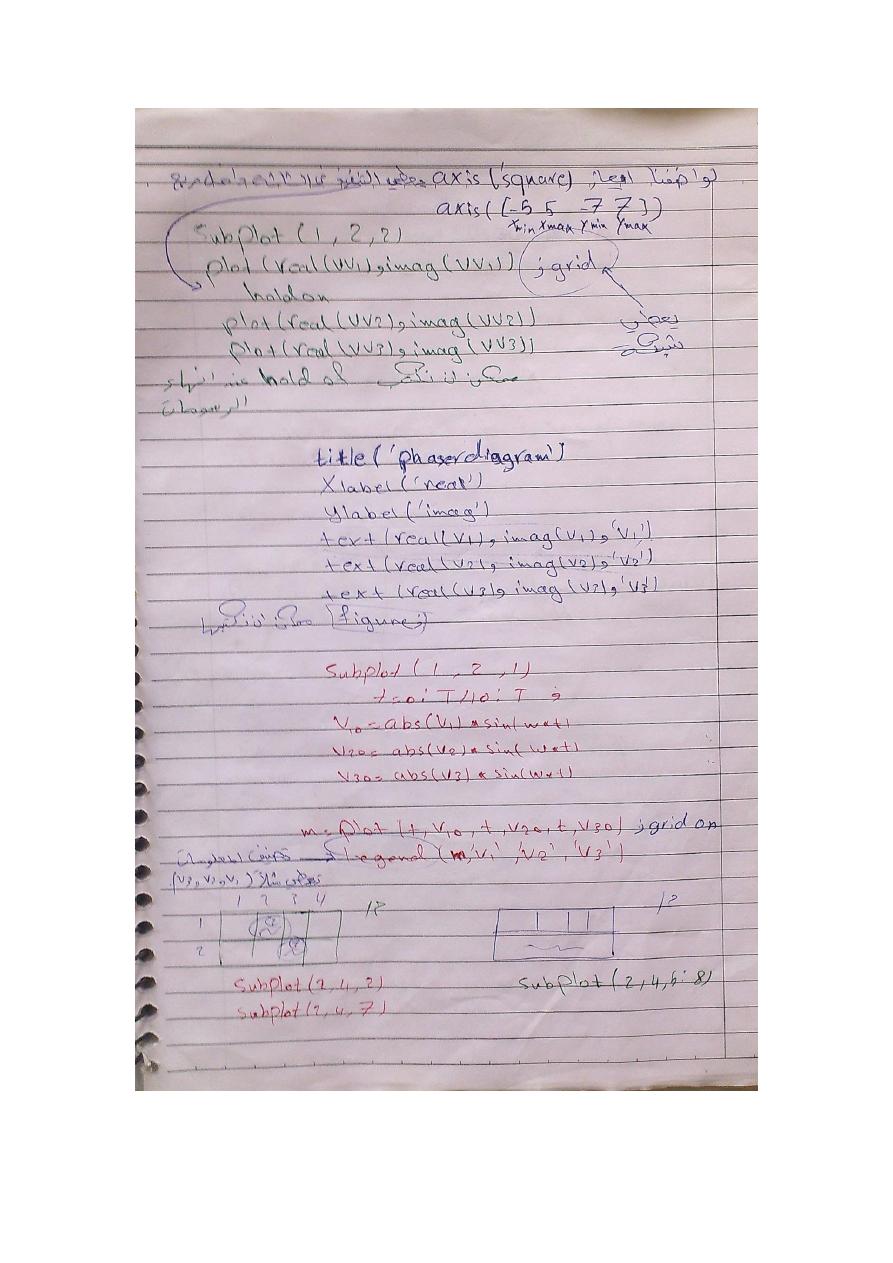 لو اضفنا ايعاز axis('square)
axis([-5 5 -7 7])
xmin xmax ymin ymax
Subplot (1,2,2)
plot(real(VV1),imag(VV1)) ; grid
hold on
plot(real(VV2),imag(VV2))
plot(real(VV3),imag(VV3))
يعطي
شبكة
ممكن ان نكتب hold of عند انتهاء
الرسومات
title('phaser diagram')
Xlabel('real')
Ylabel('imag')
text(real(V1),imag(V1),'V1')
text(real(V2),imag(V2),'V2')
text(real(V3),imag(V3),'V3')
ممكن ان نكتبها figure;
Subplot (1,2,1)
t=0:T/10:T ;
V10=abs(V1)*sin(w*t)
V20= abs(V2)*sin(w*t)
V30= abs(V3)*sin(w*t)
m=plot(t,V10,t,V20,t,V30) ; grid on
legend(m,'V1','V2','V3')
(V3,V2,V1)
1 2 3 4
1
2
Subplot(2,4,2)
Subplot(2,4,7)
Subplot(2,4,5:8)